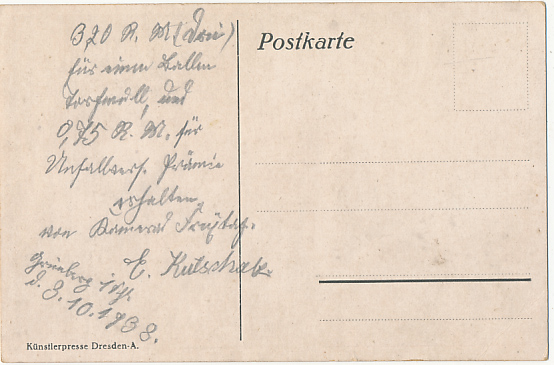 3,20 R. M. (Drei)
für einen Ballen
Torfmull, und
0,75 R. M. für
Unfallvers. Prämie
erhalten,
von Kamerad Freytag.
E. Kutschak
Grünberg i/Schl.
d. 3.10.1938.
Postkarte
Künstlerpresse Dresden-A.